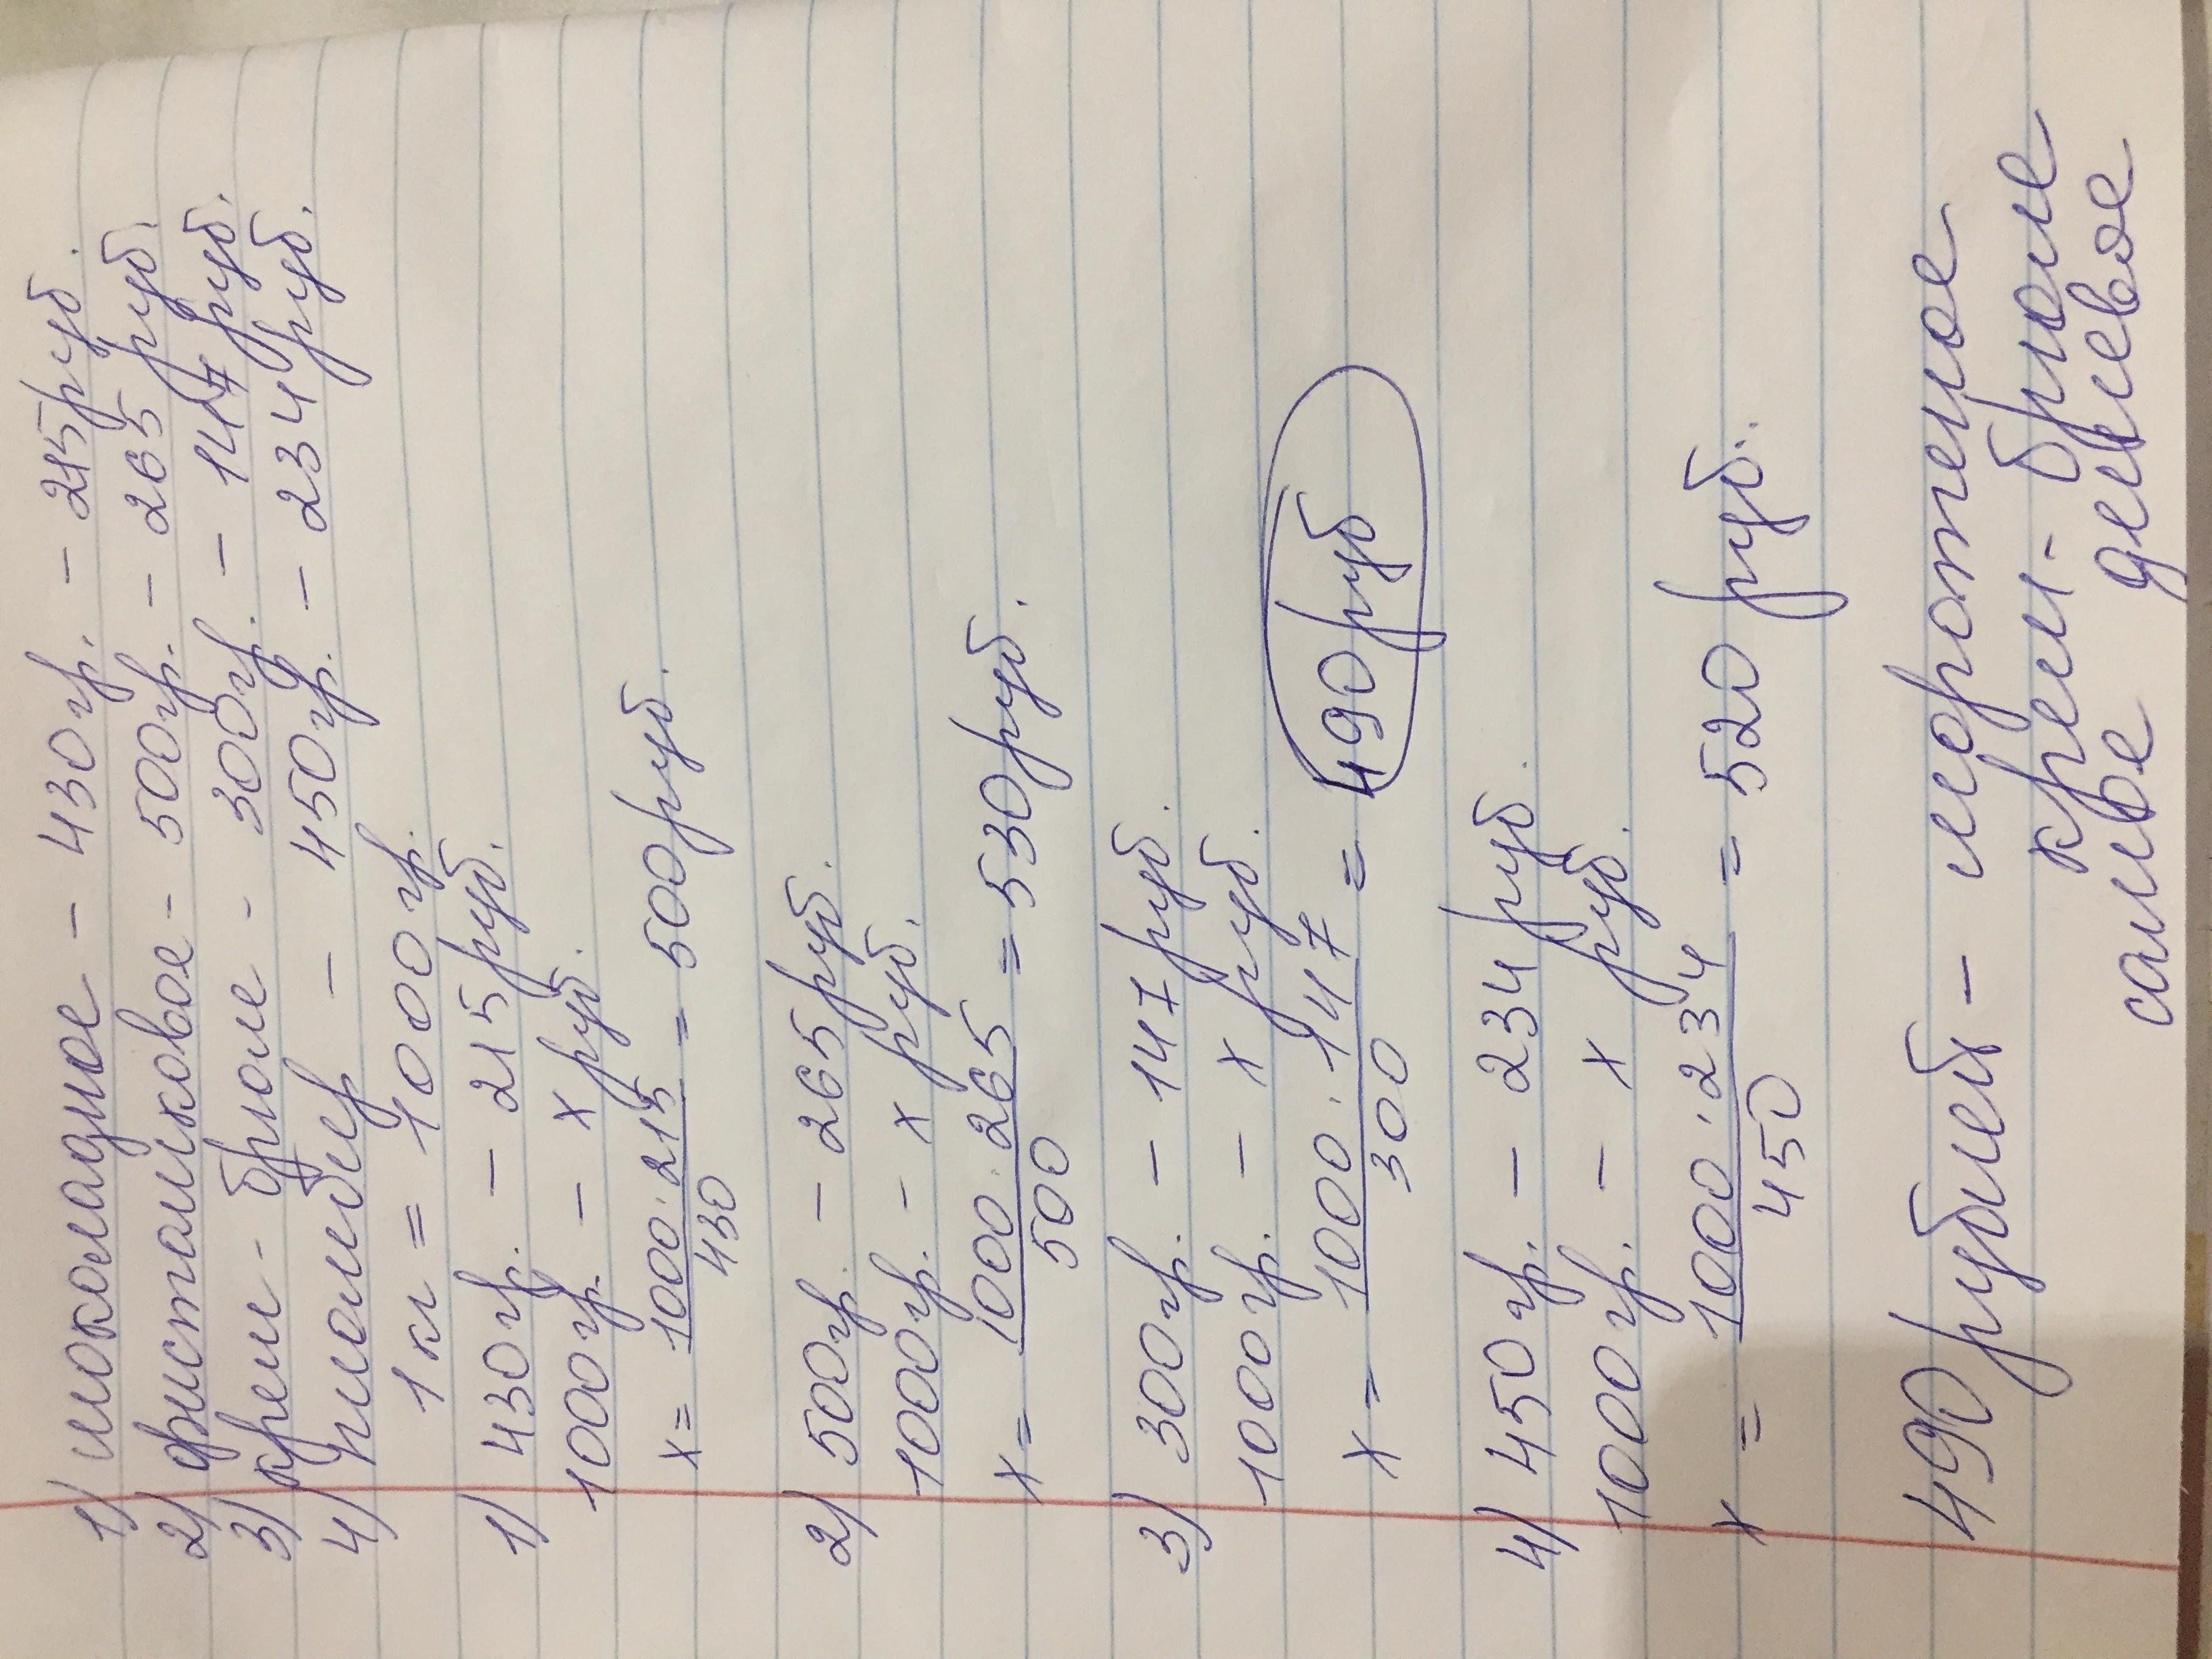 1) шоколадное - 430гр. - 215руб.
2) фисташковое - 500гр. - 265 руб.
3) крем-брюле - 300гр. - 147 руб.
4) пломбир - 450гр. - 234 руб.
1 кг = 1000 гр.
1) 430гр. - 215руб.
1000гр. - х руб.
х = 1000·215/430 = 500руб.
2) 500гр. - 265руб.
1000гр. - х руб.
х = 1000·265/500 = 530руб.
3) 300гр. - 147руб.
1000гр. - х руб.
х = 1000·147/300 = 490руб
4) 450гр. - 234руб.
1000гр. - х руб.
х = 1000·234/450 = 520 руб.
490 рублей - мороженое
крем-брюле
самое дешевое